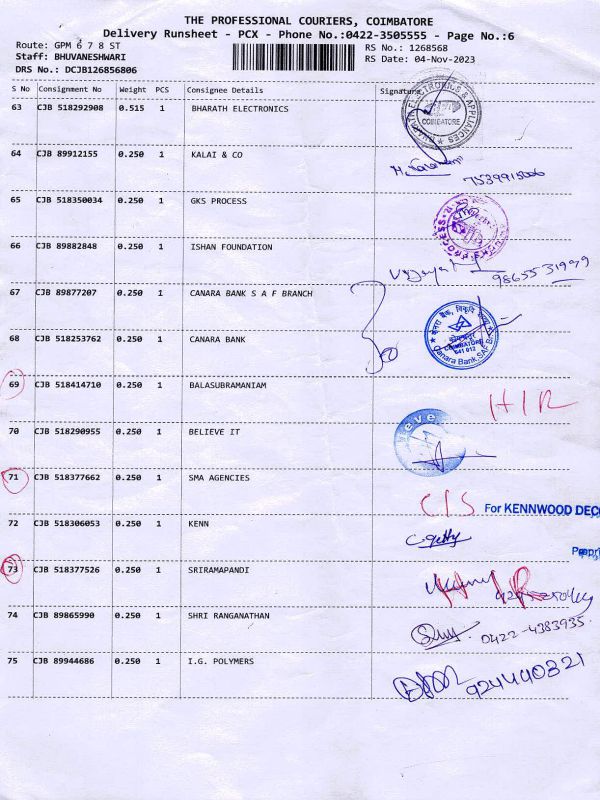 THE PROFESSIONAL COURIERS, COIMBATORE
Delivery Runsheet - PCX - Phone No.:0422-3505555 - Page No.:6
Route: GPM 6 7 8 ST
RS No.: 1268568
Staff: BHUVANESHWARI
RS Date: 04-Nov-2023
DRS No.: DCJB126856806
S No Consignment No Weight PCS Consignee Details Signature
63 CJB 518292908 0.515 1 BHARATH ELECTRONICS
BHARATH ELECTRONICS & APPLIANCES
COIMBATORE
64 CJB 89912155 0.250 1 KALAI & CO
65 CJB 518350034 0.250 1 GKS PROCESS
66 CJB 89882848 0.250 1 ISHAN FOUNDATION
67 CJB 89877207 0.250 1 CANARA BANK S A F BRANCH
68 CJB 518253762 0.250 1 CANARA BANK
COIMBATORE
641 012
Canara Bank SAF
69 CJB 518414710 0.250 1 BALASUBRAMANIAM
70 CJB 518290955 0.250 1 BELIEVE IT
71 CJB 518377662 0.250 1 SMA AGENCIES
C/S For KENNWOOD DEC
72 CJB 518306053 0.250 1 KENN
73 CJB 518377526 0.250 1 SRIRAMAPANDI
74 CJB 89865990 0.250 1 SHRI RANGANATHAN
0422-4383935
75 CJB 89944686 0.250 1 I.G. POLYMERS